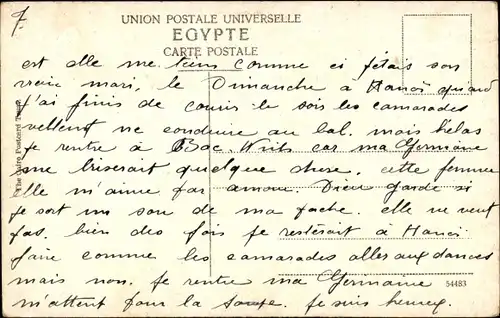 7
UNION POSTALE UNIVERSELLE
EGYPTE
CARTE POSTALE
est elle me tiens comme ci j'étais son
vrai mari, le Dimanche a Hanoï quand
j'ai finis de courir le soir les camarades
veulent me conduire au bal. mais hélas
je rentre à Bac. Ninh car ma Germaine
me briserait quelque chose, cette femme
elle m'aime par amour. Dieu garde si
je sort un sou de ma poche. elle ne veut
pas. bien des fois je resterait à Hanoï
faire comme les camarades aller aux dances
mais non. je rentre ma Germaine
m'attent pour la soupe. je suis heureux.
The Cairo Postcard Trust
54483